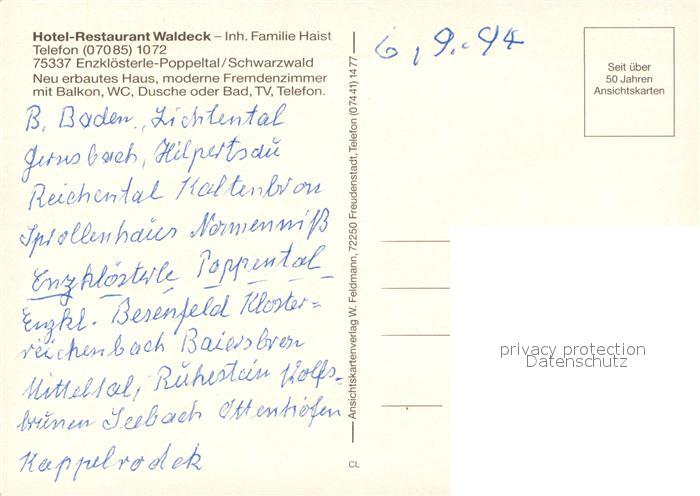 Hotel-Restaurant Waldeck – Inh. Familie Haist
Telefon (070 85) 10 72
75337 Enzklösterle-Poppeltal/Schwarzwald
Neu erbautes Haus, moderne Fremdenzimmer
mit Balkon, WC, Dusche oder Bad, TV, Telefon.
B. Baden, Lichtental
Gernsbach, Hilpertsau
Reichental Kaltenbron
Sprollenhaus Nonnenmiß
Enzklösterle Poppental
Enzkl. Besenfeld Kloster=
reichenbach Baiersbron
Mitteltal, Ruhestein Wolfs-
brunen Seebach Ottenhöfen
Kappelrodek
Ansichtskartenverlag W. Feldmann, 72250 Freudenstadt, Telefon (074 41) 14 77
CL
6, 9. 94
Seit über
50 Jahren
Ansichtskarten
privacy protection
Datenschutz